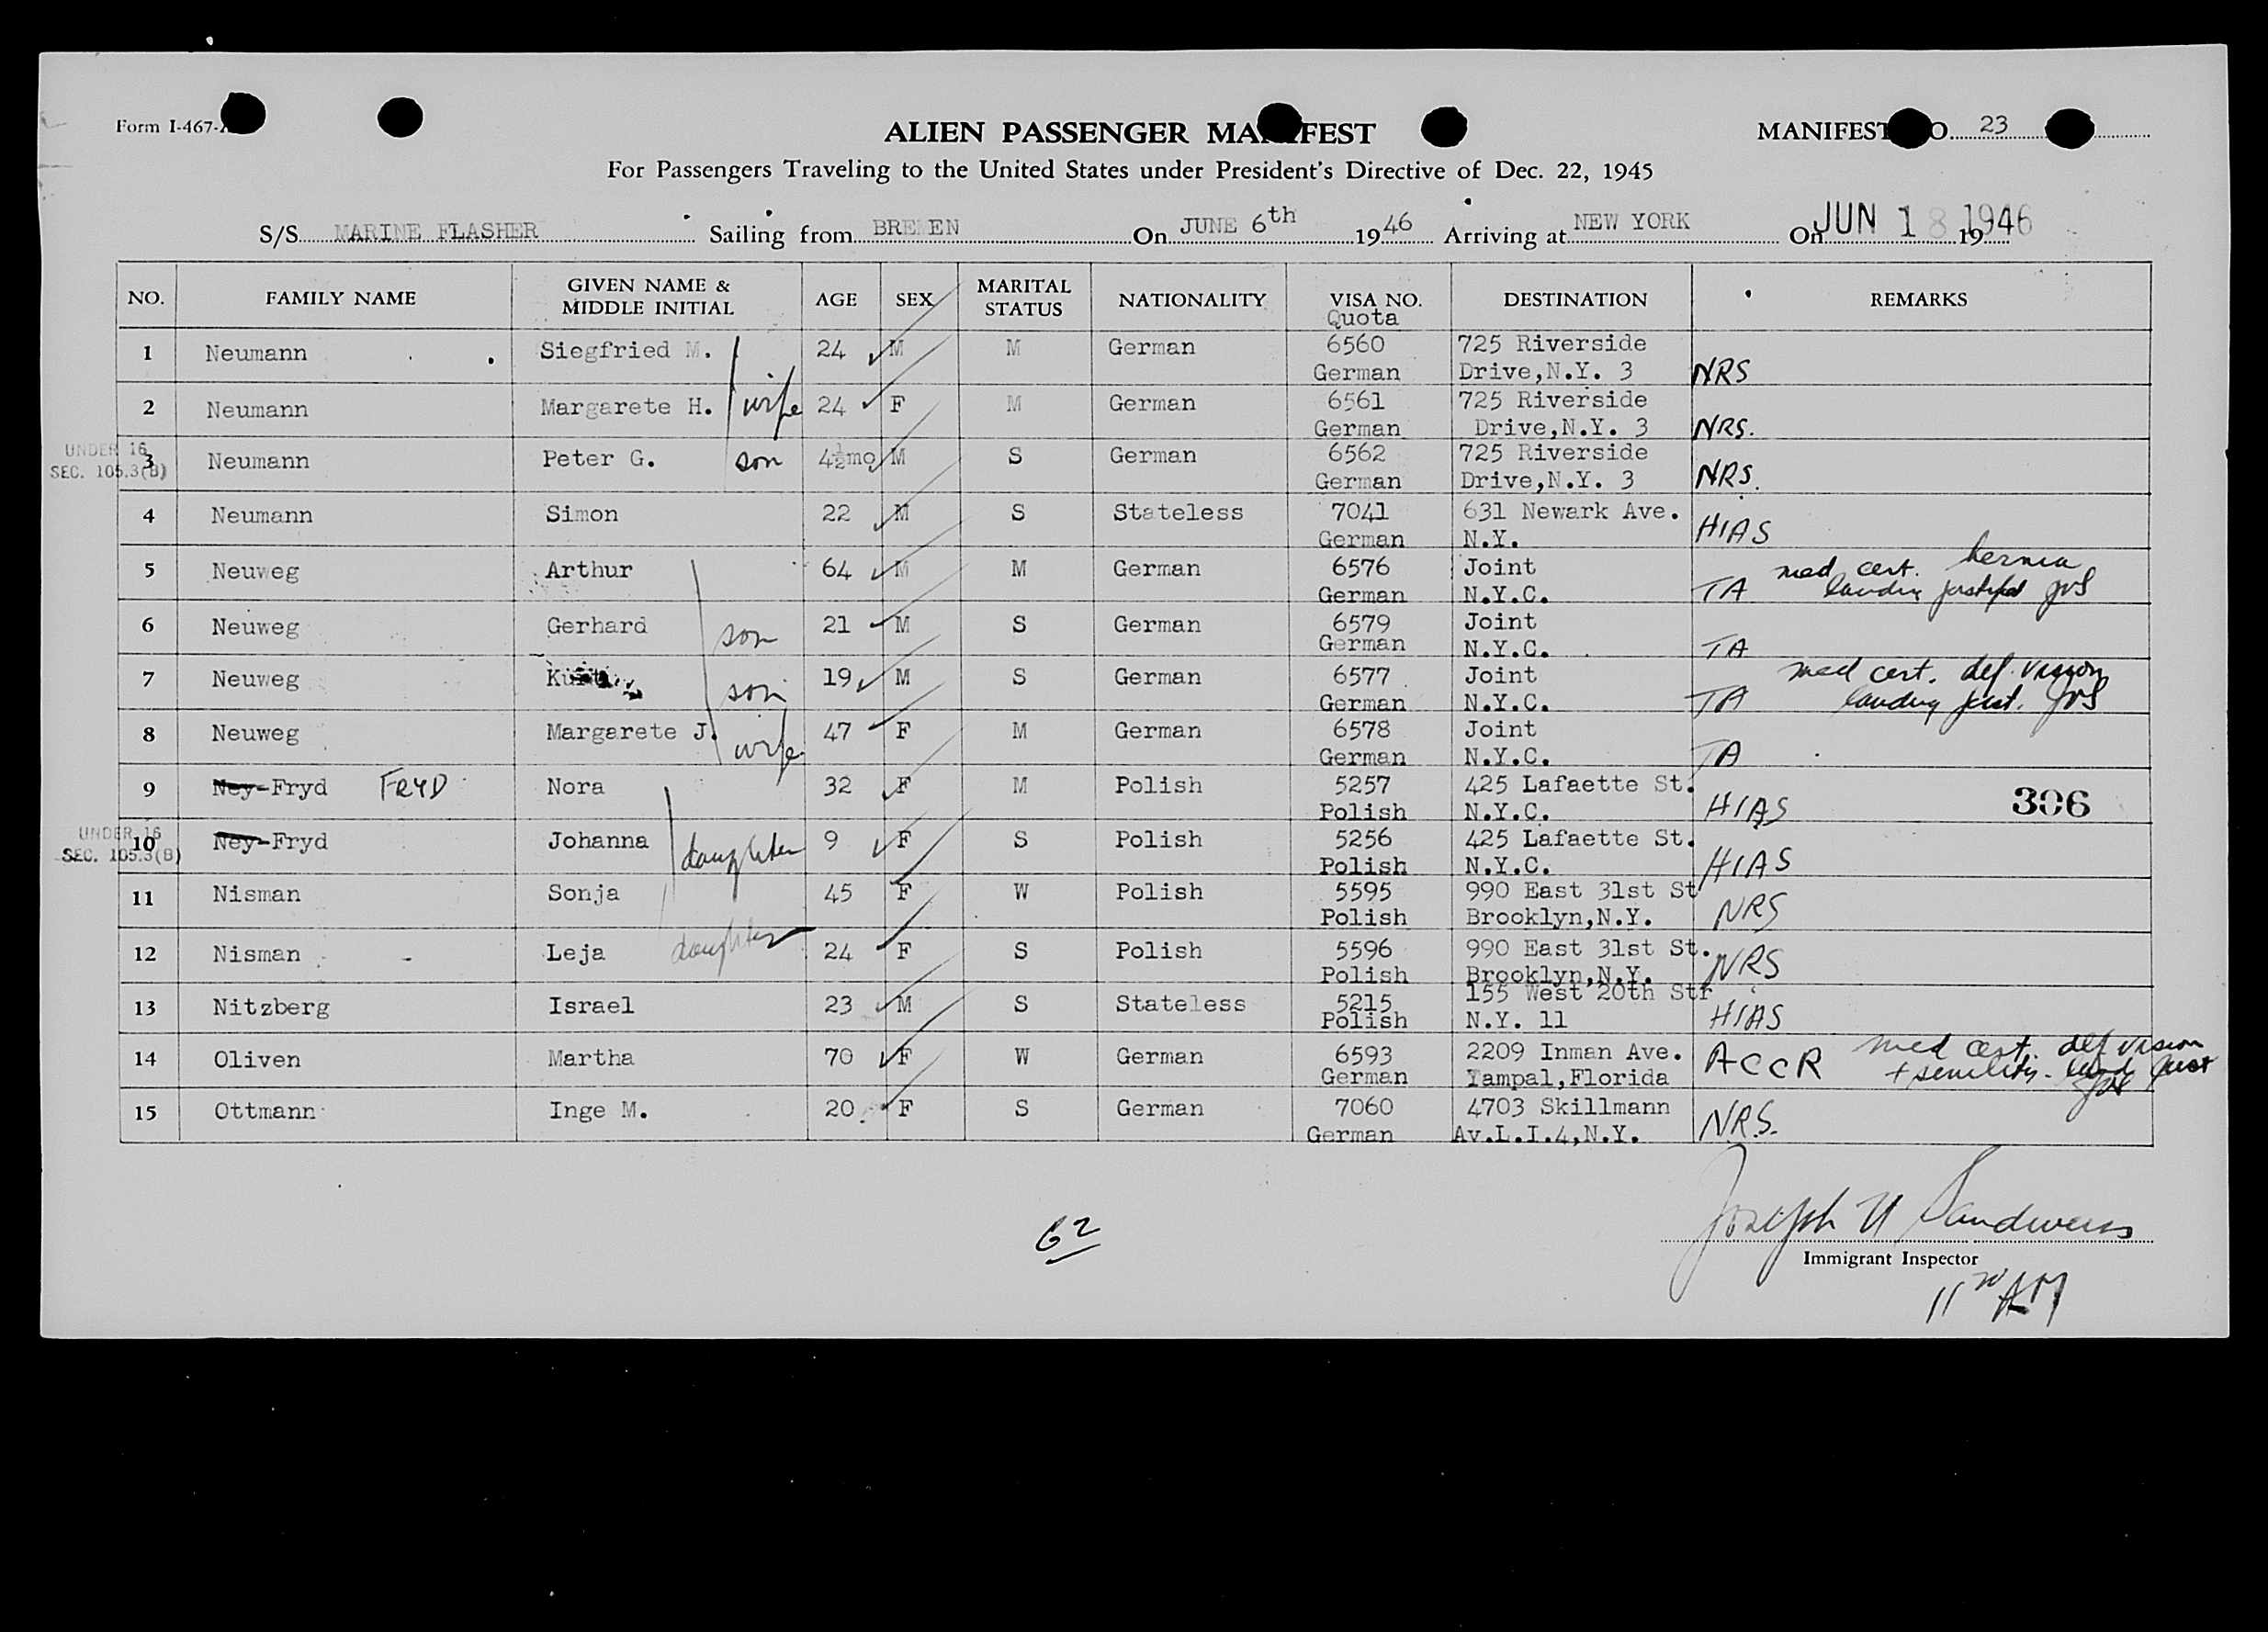 Form I-467-
ALIEN PASSENGER MANIFEST
MANIFEST NO. 23
For Passengers Traveling to the United States under President's Directive of Dec. 22, 1945
S/S MARINE FLASHER Sailing from BREMEN On JUNE 6th 1946 Arriving at NEW YORK On JUN 18 1946 19
NO. FAMILY NAME GIVEN NAME & MIDDLE INITIAL AGE SEX MARITAL STATUS NATIONALITY VISA NO. Quota DESTINATION REMARKS
1 Neumann Siegfried M. 24 M M German 6560 725 Riverside
German Drive,N.Y. 3 NRS
2 Neumann Margarete H. wife 24 F M German 6561 725 Riverside
German Drive,N.Y. 3 NRS.
UNDER 16
SEC. 105.3(B)
3 Neumann Peter G. son 4½mo M S German 6562 725 Riverside
German Drive,N.Y. 3 NRS.
4 Neumann Simon 22 M S Stateless 7041 631 Newark Ave.
German N.Y. HIAS
5 Neuweg Arthur 64 M M German 6576 Joint med cert. hernia
German N.Y.C. TA landing justified
6 Neuweg Gerhard son 21 M S German 6579 Joint
German N.Y.C. TA
7 Neuweg son 19 M S German 6577 Joint med cert. def. vision
German N.Y.C. TA landing just.
8 Neuweg Margarete J. wife 47 F M German 6578 Joint
German N.Y.C. TA
9 Ney-Fryd FRYD Nora 32 F M Polish 5257 425 Lafaette St.
Polish N.Y.C. HIAS 306
UNDER 16
SEC. 105.3(B)
10 Ney-Fryd Johanna daughter 9 F S Polish 5256 425 Lafaette St.
Polish N.Y.C. HIAS
11 Nisman Sonja 45 F W Polish 5595 990 East 31st St
Polish Brooklyn,N.Y. NRS
12 Nisman Leja daughter 24 F S Polish 5596 990 East 31st St.
Polish Brooklyn,N.Y. NRS
13 Nitzberg Israel 23 M S Stateless 5215 155 West 20th Str
Polish N.Y. 11 HIAS
14 Oliven Martha 70 F W German 6593 2209 Inman Ave. ACCR med cert. def vision
German Tampal,Florida + senility - land just
15 Ottmann Inge M. 20 F S German 7060 4703 Skillmann
German Av.L.I.4,N.Y. NRS.
62
Joseph Sandweiss
Immigrant Inspector
AM